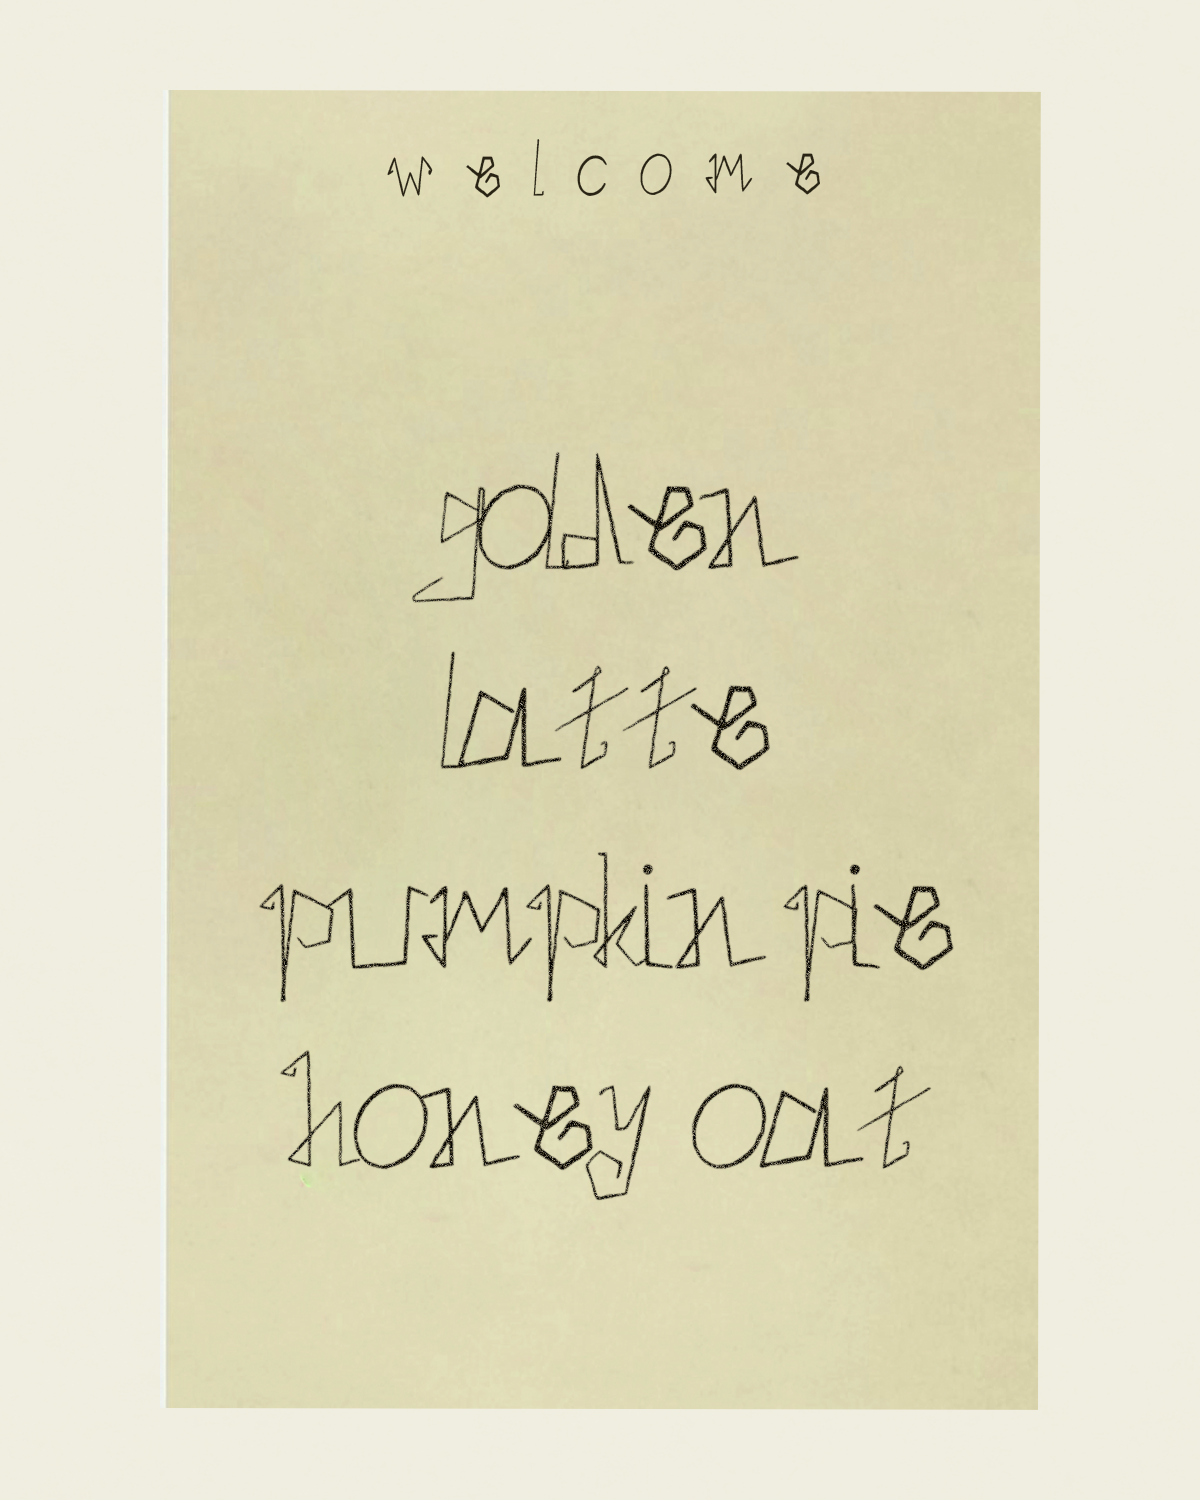 welcome
golden
latte
pumpkin pie
honey oat